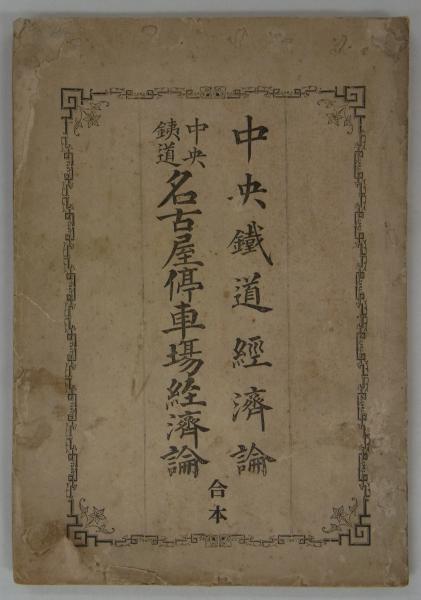 中央鐵道經濟論
中央鉄道名古屋停車場経濟論
合本